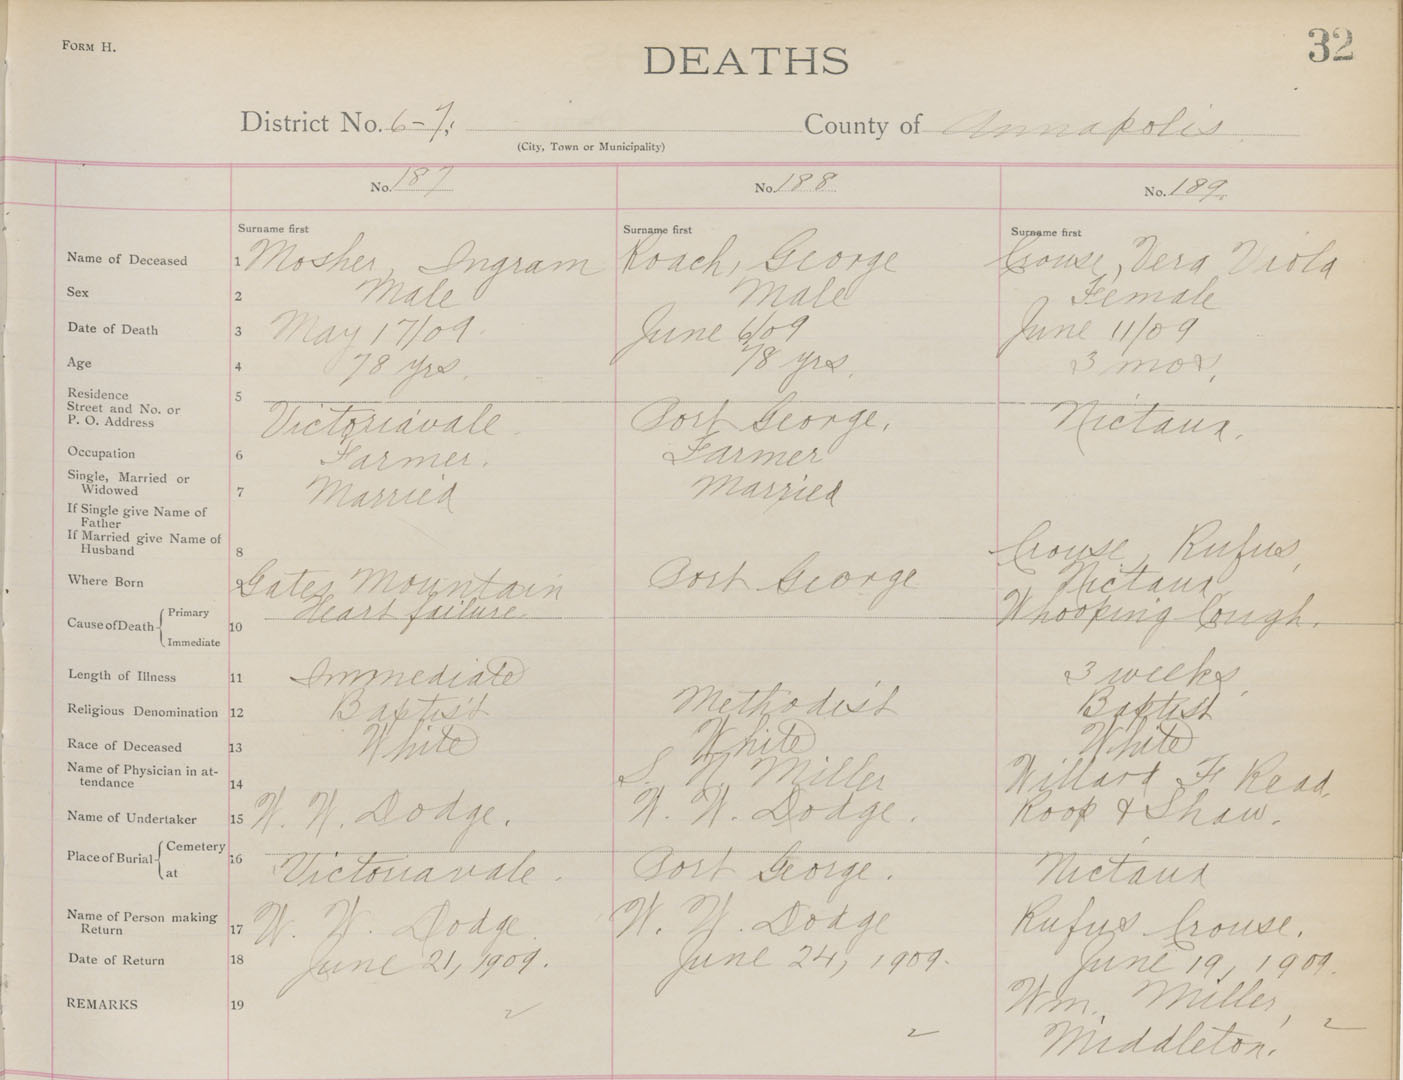 FORM H.
32
DEATHS
District No. 6-7, County of Annapolis
(City, Town or Municipality)
No. 187 No. 188 No. 189.
Surname first Surname first Surname first
Name of Deceased 1 Mosher, Ingram Roach, George Crouse, Vera Viola
Sex 2 Male Male Female
Date of Death 3 May 17/09. June 6/09 June 11/09
Age 4 78 yrs. 78 yrs. 3 mos.
Residence 5
Street and No. or
P. O. Address Victoriavale. Port George. Nictaux.
Occupation 6 Farmer. Farmer
Single, Married or
Widowed 7 Married Married
If Single give Name of
Father
If Married give Name of
Husband 8 Crouse, Rufus,
Where Born 9 Gates Mountain Port George Nictaux
Cause of Death Primary Heart failure. Whooping Cough.
10
Immediate
Length of Illness 11 Immediate 3 weeks.
Religious Denomination 12 Baptist Methodist Baptist
Race of Deceased 13 White White White
Name of Physician in at-
tendance 14 S. N. Miller Willard F Read.
Name of Undertaker 15 W. W. Dodge. W. W. Dodge. Roop & Shaw.
Place of Burial Cemetery 16
at Victoriavale. Port George. Nictaux
Name of Person making
Return 17 W. W. Dodge. W. W. Dodge Rufus Crouse.
Date of Return 18 June 21, 1909. June 24, 1909. June 19, 1909.
REMARKS 19 Wm. Miller,
Middleton.